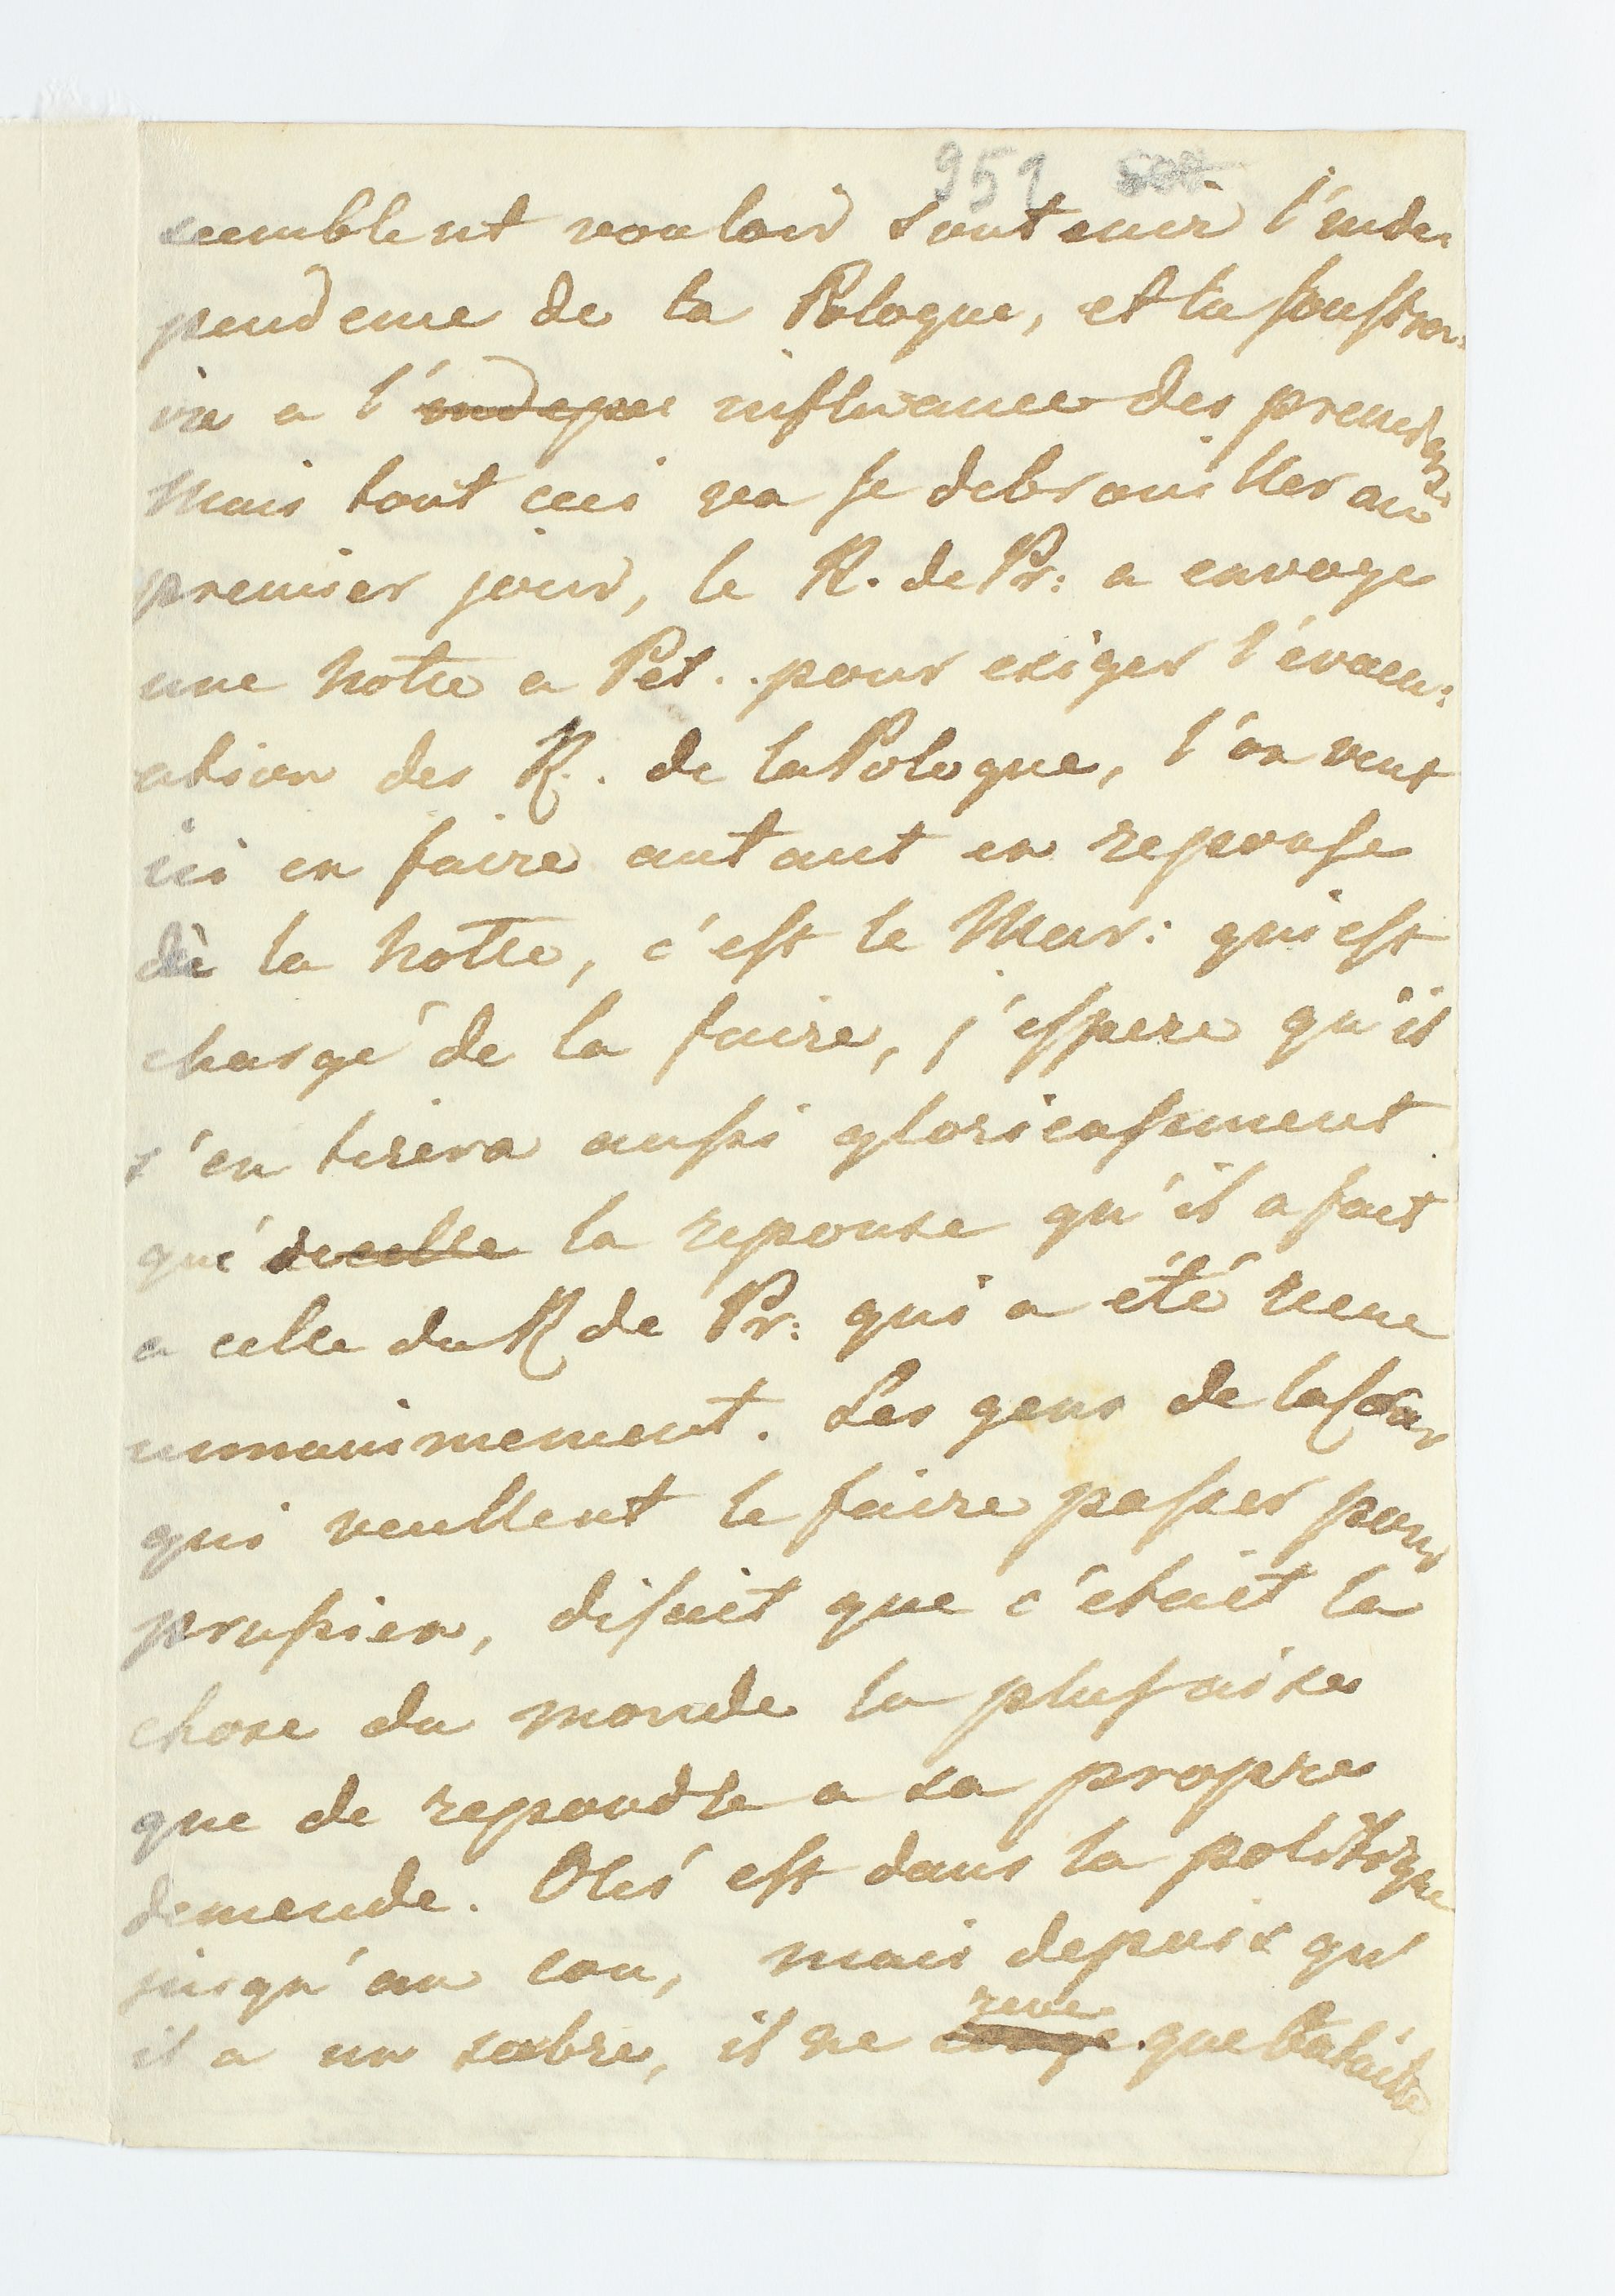 959
semblent vouloir soutenir l'inde
pendence de la Pologne, et la soustra:
ire a l'indepe influance des premiers
Mais tout ceci va se debrouiller au
premier jour, le R. de Pr: a envoye
une notte a Pet.. pour exiger l'évacu:
ation des R. de la Pologne, l'on veut
ici en faire autant en reponse
de la notte, c'est le Mar: qui est
chargé de la faire, j'espere qu'il
s'en tirera aussi glorieusement
que de celle la reponse qu'il a fait
a celle du R de Pr: qui a été recue
unnanimement. Les gens de la Cour
qui veullent le faire passer pour
prussien, disait que c'était la
chose du monde la plus aisée
que de repondre a sa propre
demende. Olés est dans la politique
jusqu'au cou, mais depuis qu'
il a un sabre, il ne reve que bataille